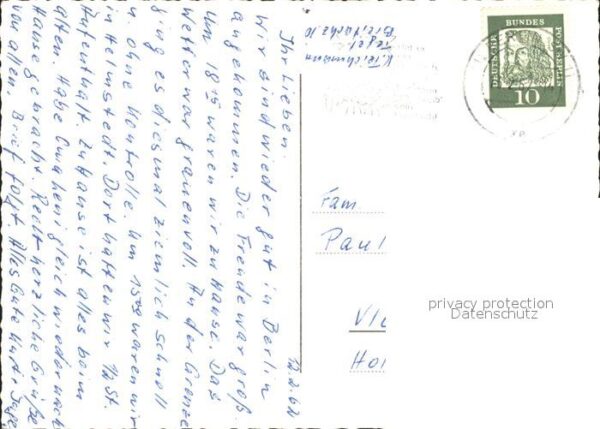 12.2.62
Ihr Lieben.
Wir sind wieder gut in Berlin
angekommen. Die Freude war groß.
Um 18 15 waren wir zu Hause. Das
Wetter war grauenvoll. An der Grenze
ging es diesmal ziemlich schnell
u. ohne Kontrolle. Um 15 waren wir
in Helmstedt. Dort hatten wir 1/2 St.
Aufenthalt. Zu Hause ist alles beim
alten. Habe gleich wieder nach
Hause gebracht. Recht herzliche Grüße
von allen. Brief folgt. Alles Gute
K. Teichmann
Tegel
10
DEUTSCHE BUNDESPOST BERLIN
10
Fam
Paul
privacy protection
Datenschutz